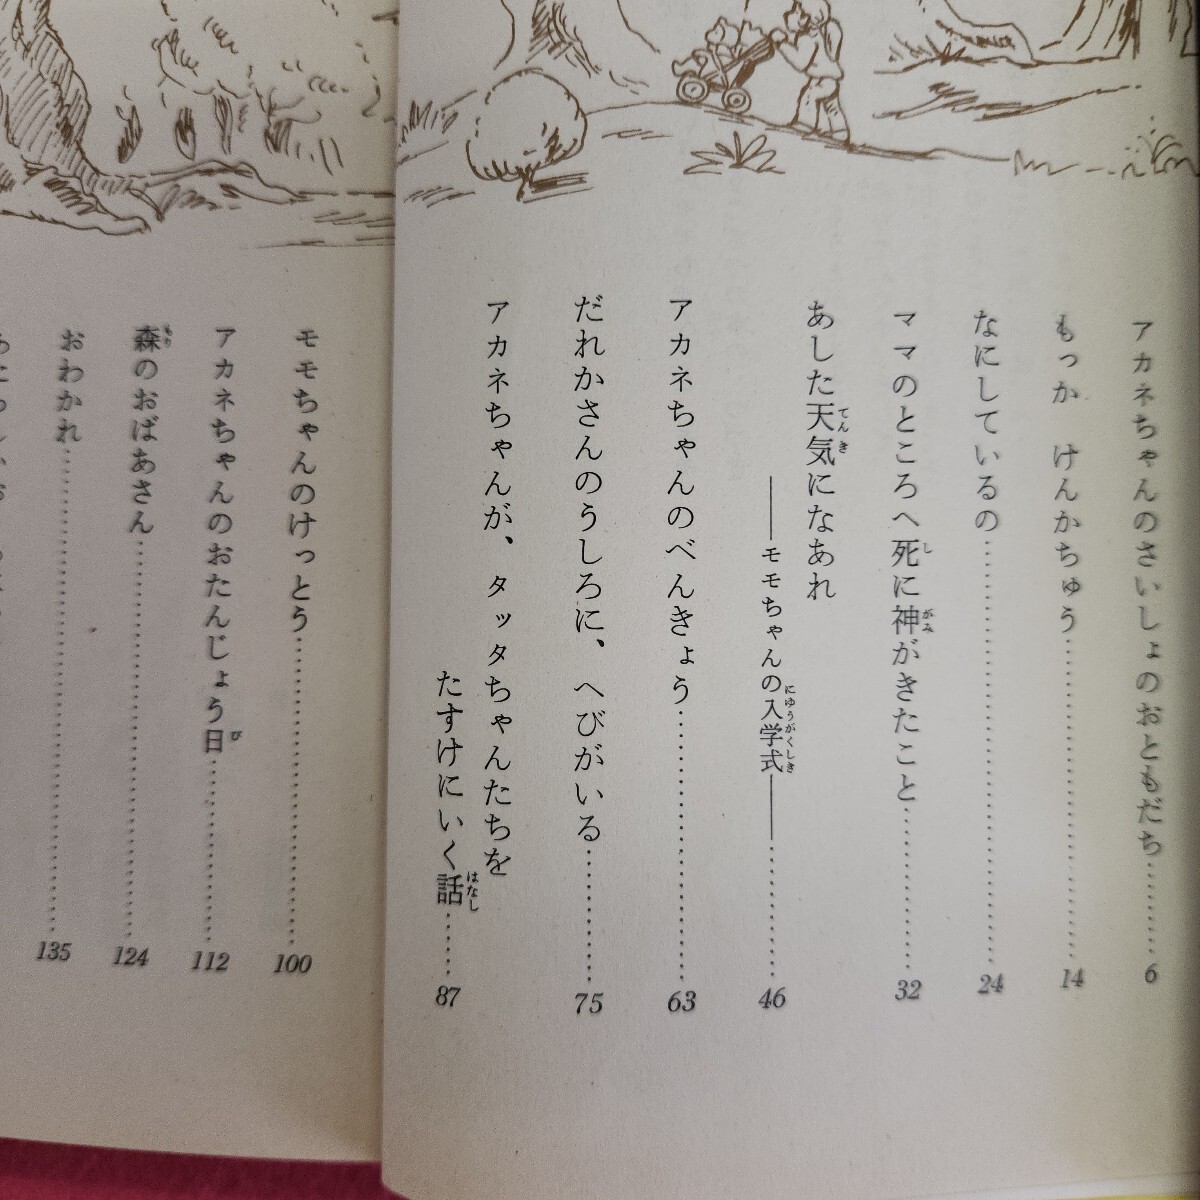 アカネちゃんのさいしょのおともだち………6
もっか　けんかちゅう………14
なにしているの………24
ママのところへ死に神がきたこと………32
あした天気になあれ
――モモちゃんの入学式――………46
アカネちゃんのべんきょう………63
だれかさんのうしろに、へびがいる………75
アカネちゃんが、タッタちゃんたちを
たすけにいく話………87
モモちゃんのけっとう………100
アカネちゃんのおたんじょう日………112
森のおばあさん………124
おわかれ………135